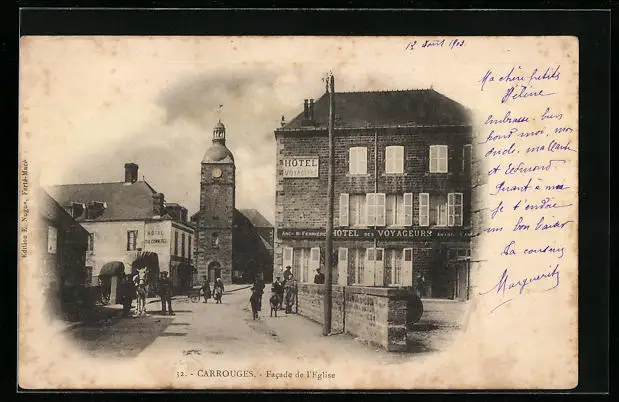 12 Août 1903
Ma chère petite
Hélène
Embrasse bien
pour moi, mon
oncle, ma tante
et Edmond.
Quant à moi
je t'envoie
un bon baiser
Ta cousine
Marguerite
HOTEL
VOYAGEURS
HOTEL
DU COMMERCE
ANCNE M. FERRIÈRE HOTEL DES VOYAGEURS
Edition E. Nugue, Ferté-Macé
32. - CARROUGES. - Façade de l'Eglise